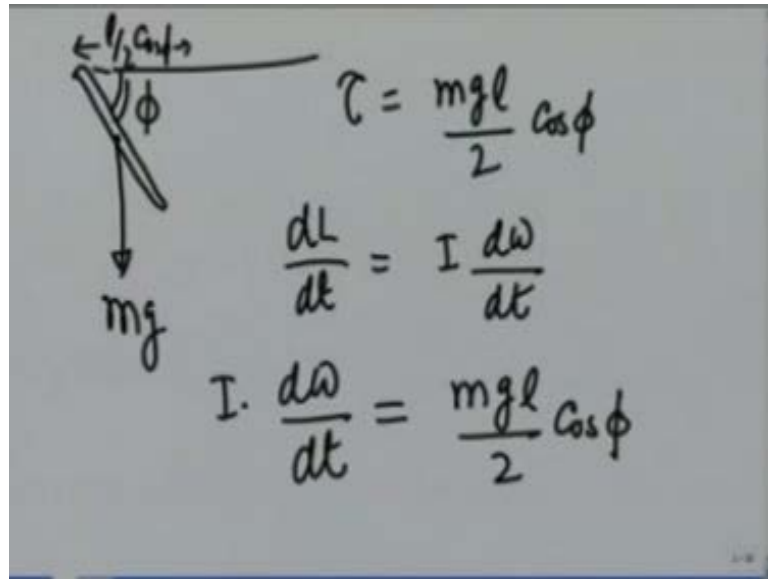 ← l/2 cosϕ →
ϕ
τ = mgl/2 cosϕ
dL/dt = I dω/dt
mg
I. dω/dt = mgl/2 cosϕ